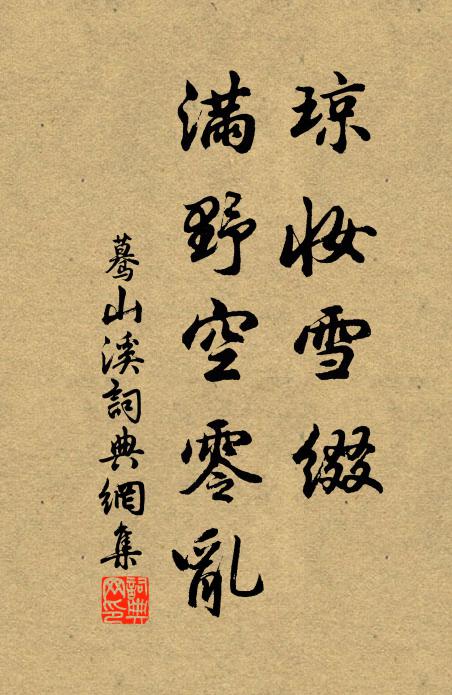 琼妆雪缀
满野空零亂
蓦山溪詞典網集
詞典网印